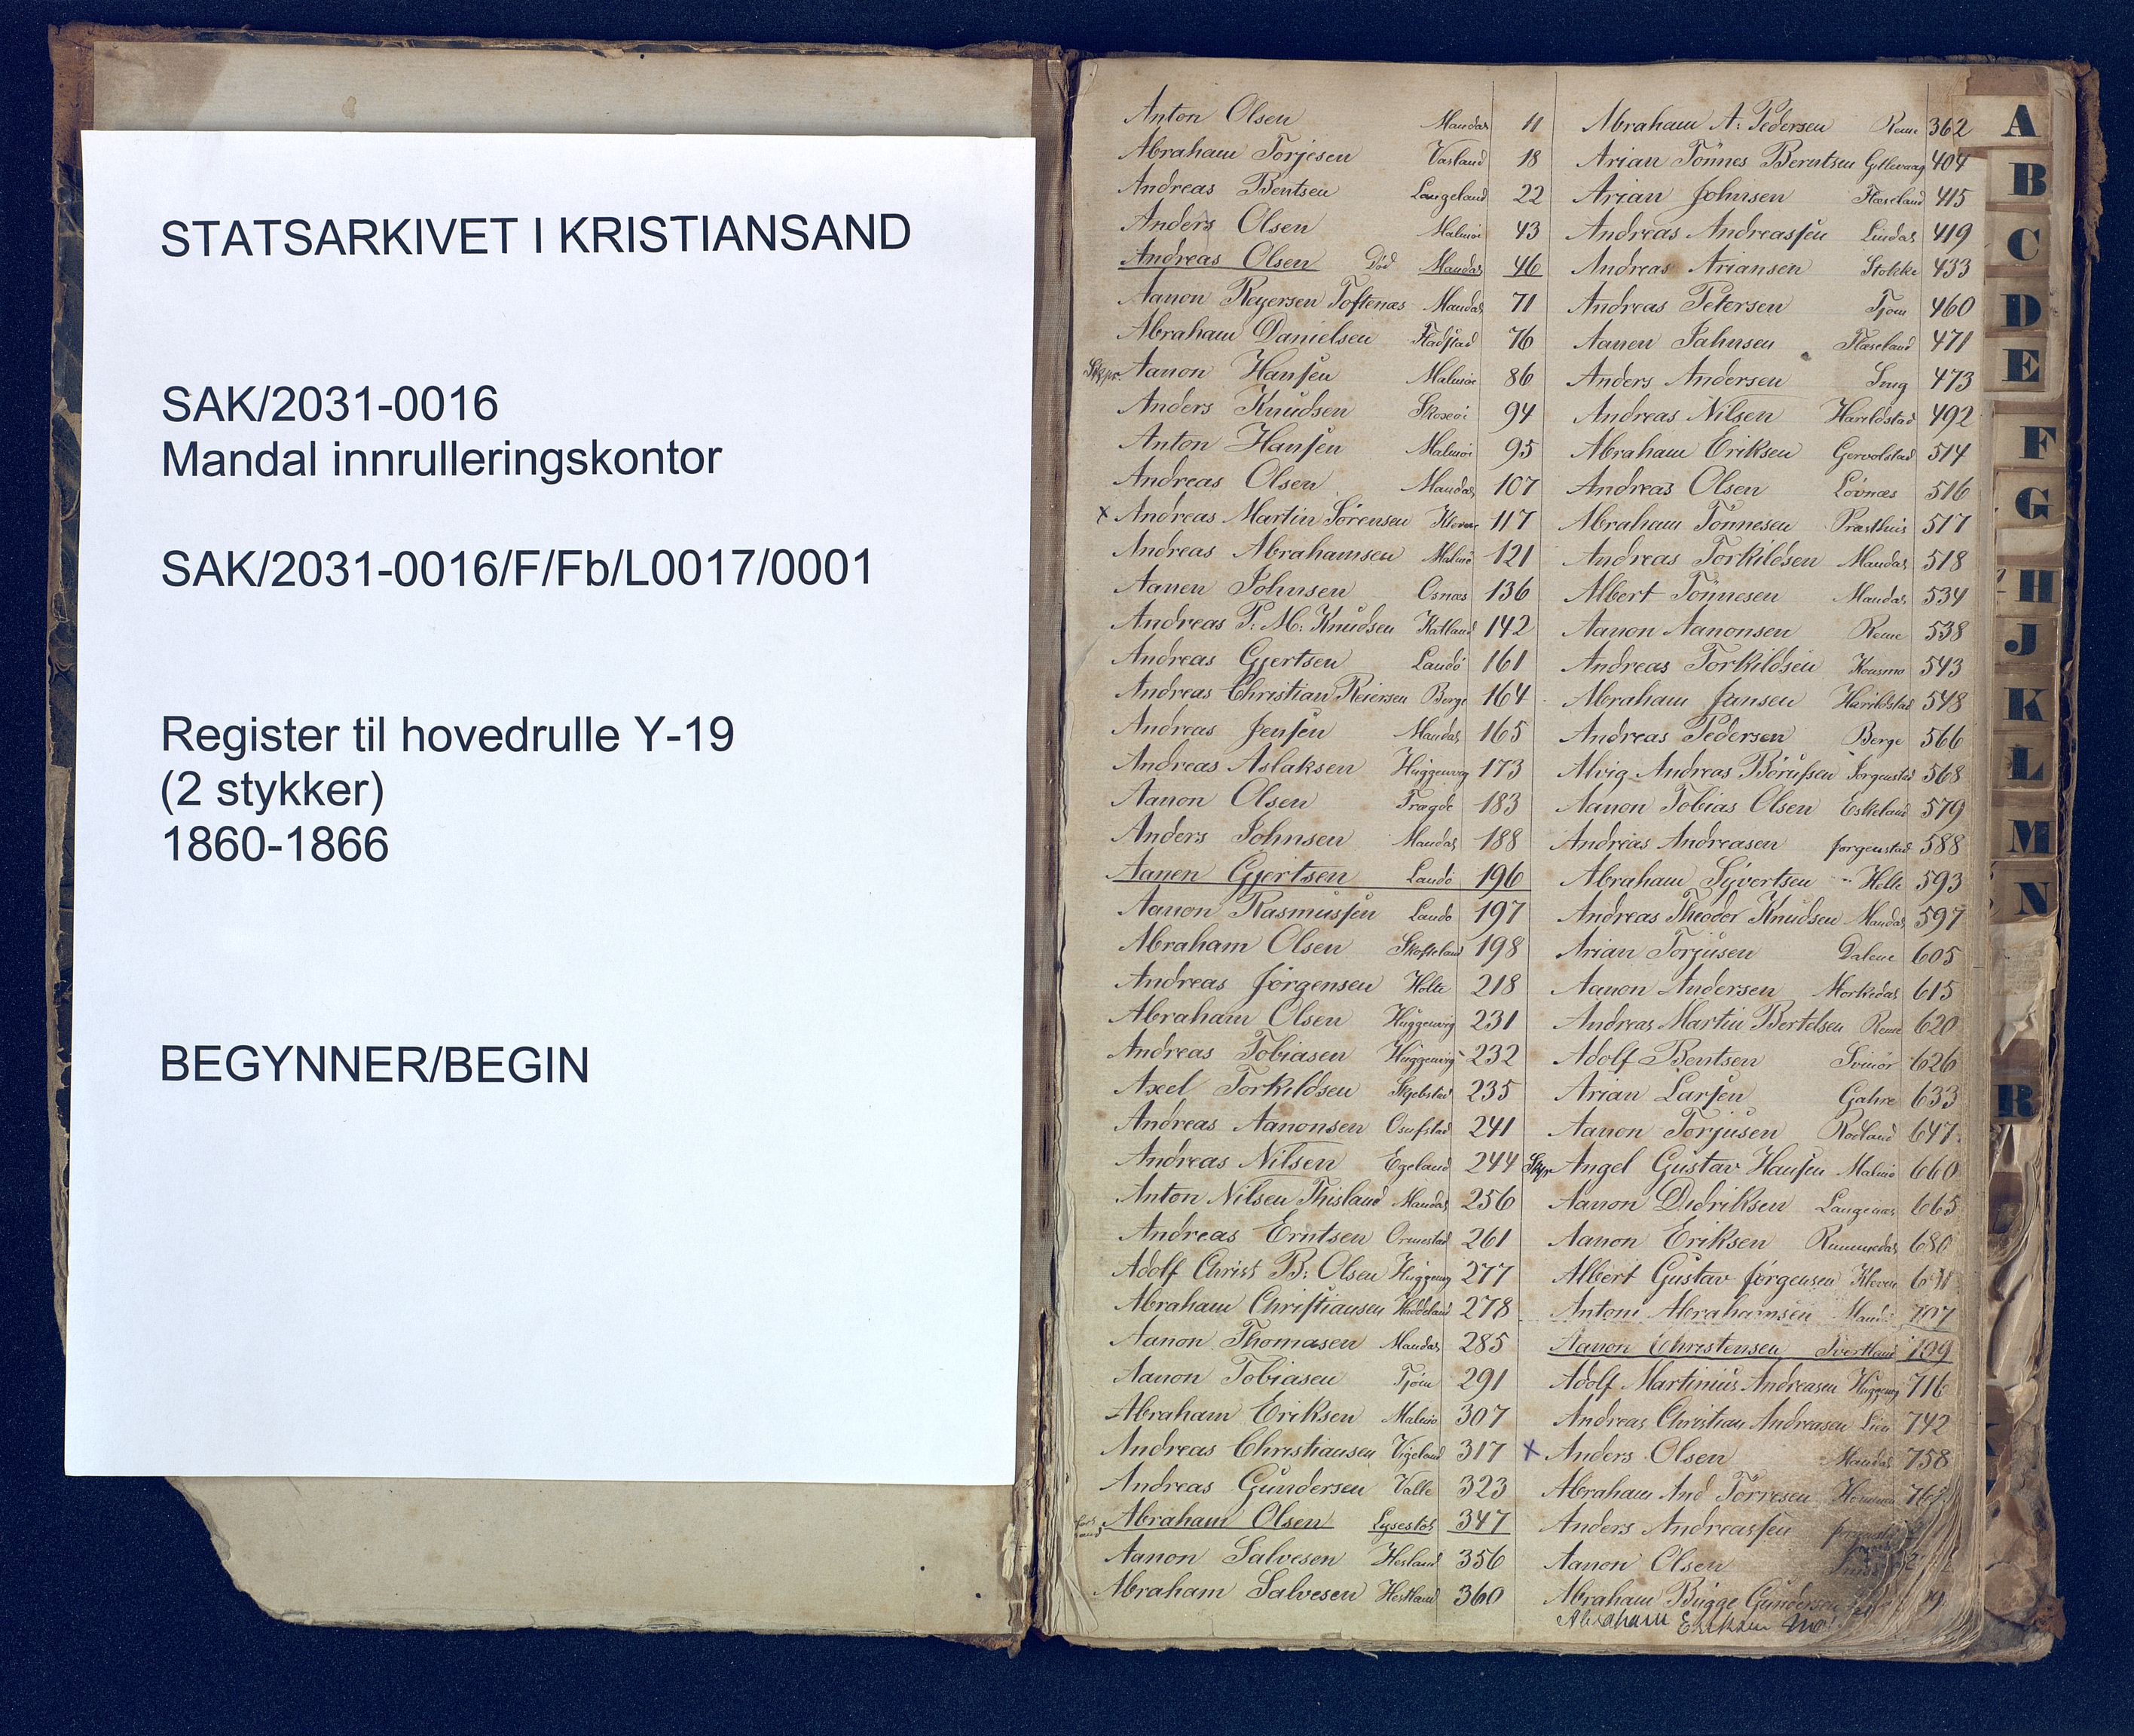 STATSARKIVET I KRISTIANSAND
SAK/2031-0016
Mandal innrulleringskontor
SAK/2031-0016/F/Fb/L0017/0001
Register til hovedrulle Y-19
(2 stykker)
1860-1866
BEGYNNER/BEGIN
Anton Olsen Mandal 11
Abraham Torjesen Vasland 18
Andreas Bentsen Langeland 22
Anders Olsen Malmö 43
Andreas Olsen Död Mandal 46
Aanon Reyersen Toftenæs Mandal 71
Abraham Danielsen 76
Skpr. Aanon Hansen Malmöe 86
Anders Knudsen 94
Anton Hansen Malmöe 95
Andreas Olsen Mandal 107
x Andreas Martin Sörensen Kleven 117
Andreas Abrahamsen Malmö 121
Aanen Johnsen Osnæs 136
Andreas P: M: Knudsen Katland 142
Andreas Gjertsen Landö 161
Andreas Christian Reiersen Berge 164
Andreas Jensen Mandal 165
Andreas Aslaksen Huggenvig 173
Aanon Olsen Tragde 183
Anders Johnsen Mandal 188
Aanen Gjertsen Landö 196
Aanon Rasmussen Landö 197
Abraham Olsen Skofteland 198
Andreas Jörgensen Holte 218
Abraham Olsen Huggenvig 231
Andreas Tobiasen Huggenvig 232
Axel Torkildsen Skjebstad 235
Andreas Aanonsen 241
Andreas Nilsen Egeland 244
Anton Nilsen Thisland Mandal 256
Andreas Erntsen Ormestad 261
Adolf Christ B: Olsen Huggenvig 277
Abraham Christiansen 278
Aanon Thomasen Mandal 285
Aanon Tobiasen Tjöm 291
Abraham Eriksen Malmö 307
Andreas Christiansen Vigeland 317
Andreas Gundersen Valle 323
Abraham Olsen 347
Aanon Salvesen Hesland 356
Abraham Salvesen Hestland 360
Abraham A: Pedersen Reme 362
Arian Tönnes Berntsen 404
Arian Johnsen Flæseland 415
Andreas Andreassen Lindal 419
Andreas Ariansen Stokke 433
Andreas Petersen Tjom 460
Aanen Jahnsen Flæseland 471
Anders Andersen 473
Andreas Nilsen Harildstad 492
Abraham Eriksen Gervolstad 514
Andreas Olsen Lövnæs 516
Abraham Tönnesen Præsthuis 517
Andreas Torkildsen Mandal 518
Albert Tönnesen Mandal 534
Aanon Aanonsen Reme 538
Andreas Torkildsen 543
Abraham Jansen Harildstad 548
Andreas Pedersen Berge 566
Alvig Andreas Börufsen Jörgenstad 568
Aanon Tobias Olsen Eskeland 579
Andreas Andreasen Jorgenstad 588
Abraham Syvertsen Holte 593
Andreas Theodor Knudsen Mandal 597
Arian Torjusen Dalene 605
Aanon Andersen Morkedal 615
Andreas Martin Bertelsen Reme 620
Adolf Bentsen Svinör 626
Arian Larsen Gahre 633
Aanon Torjusen Rödland 647
Skpr Angel Gustav Hansen Malmö 660
Aanon Didriksen Langenæs 665
Aanon Eriksen 680
Albert Gustav Jörgensen Kleven
Antoni Abrahamsen Mandal 707
Aanon Christensen 709
Adolf Martinius Andreasen Huggenvig 716
Andreas Christian Andreasen Lien 742
x Anders Olsen Mandal 758
Abraham And Törresen
Anders Andreassen
Aanon Olsen
Abraham Bugge Gundersen
Abraham Eriksen
A
B
C
D
E
F
G
H
J
K
L
M
N
R